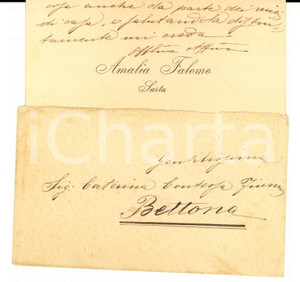 cose anche da parte dei miei
di casa, e salutandola distin
tamente mi creda
Amalia Falomo
Sarta
iCharta
Gentilissima
Sig. Caterina Contessa
Bettona